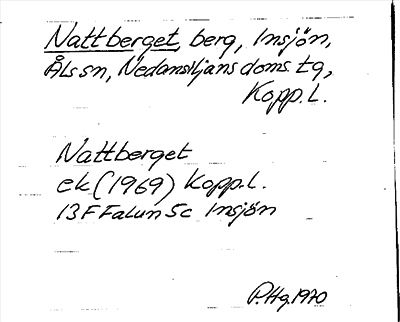 Nattberget, berg, Insjön,
Åls sn, Nedansiljans doms. tg,
Kopp. L.
Nattberget
ek (1969) Kopp. L.
13F Falun 5c Insjön
P.Hg. 1970